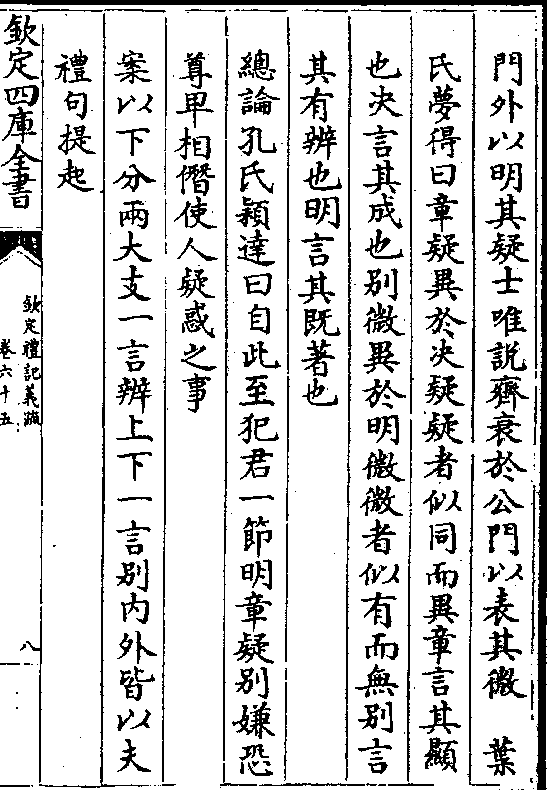 門外以明其疑士唯說齊衰於公門以表其微　葉
氏夢得曰章疑異於决疑疑者似同而異章言其顯
也决言其成也别微異於明微微者似有而無别言
其有辨也明言其既著也
總論孔氏穎達曰自此至犯君一節明章疑别嫌恐
尊卑相僭使人疑惑之事
案以下分兩大支一言辨上下一言别内外皆以夫
禮句提起
欽定四庫全書
欽定禮記義疏
卷六十五
八